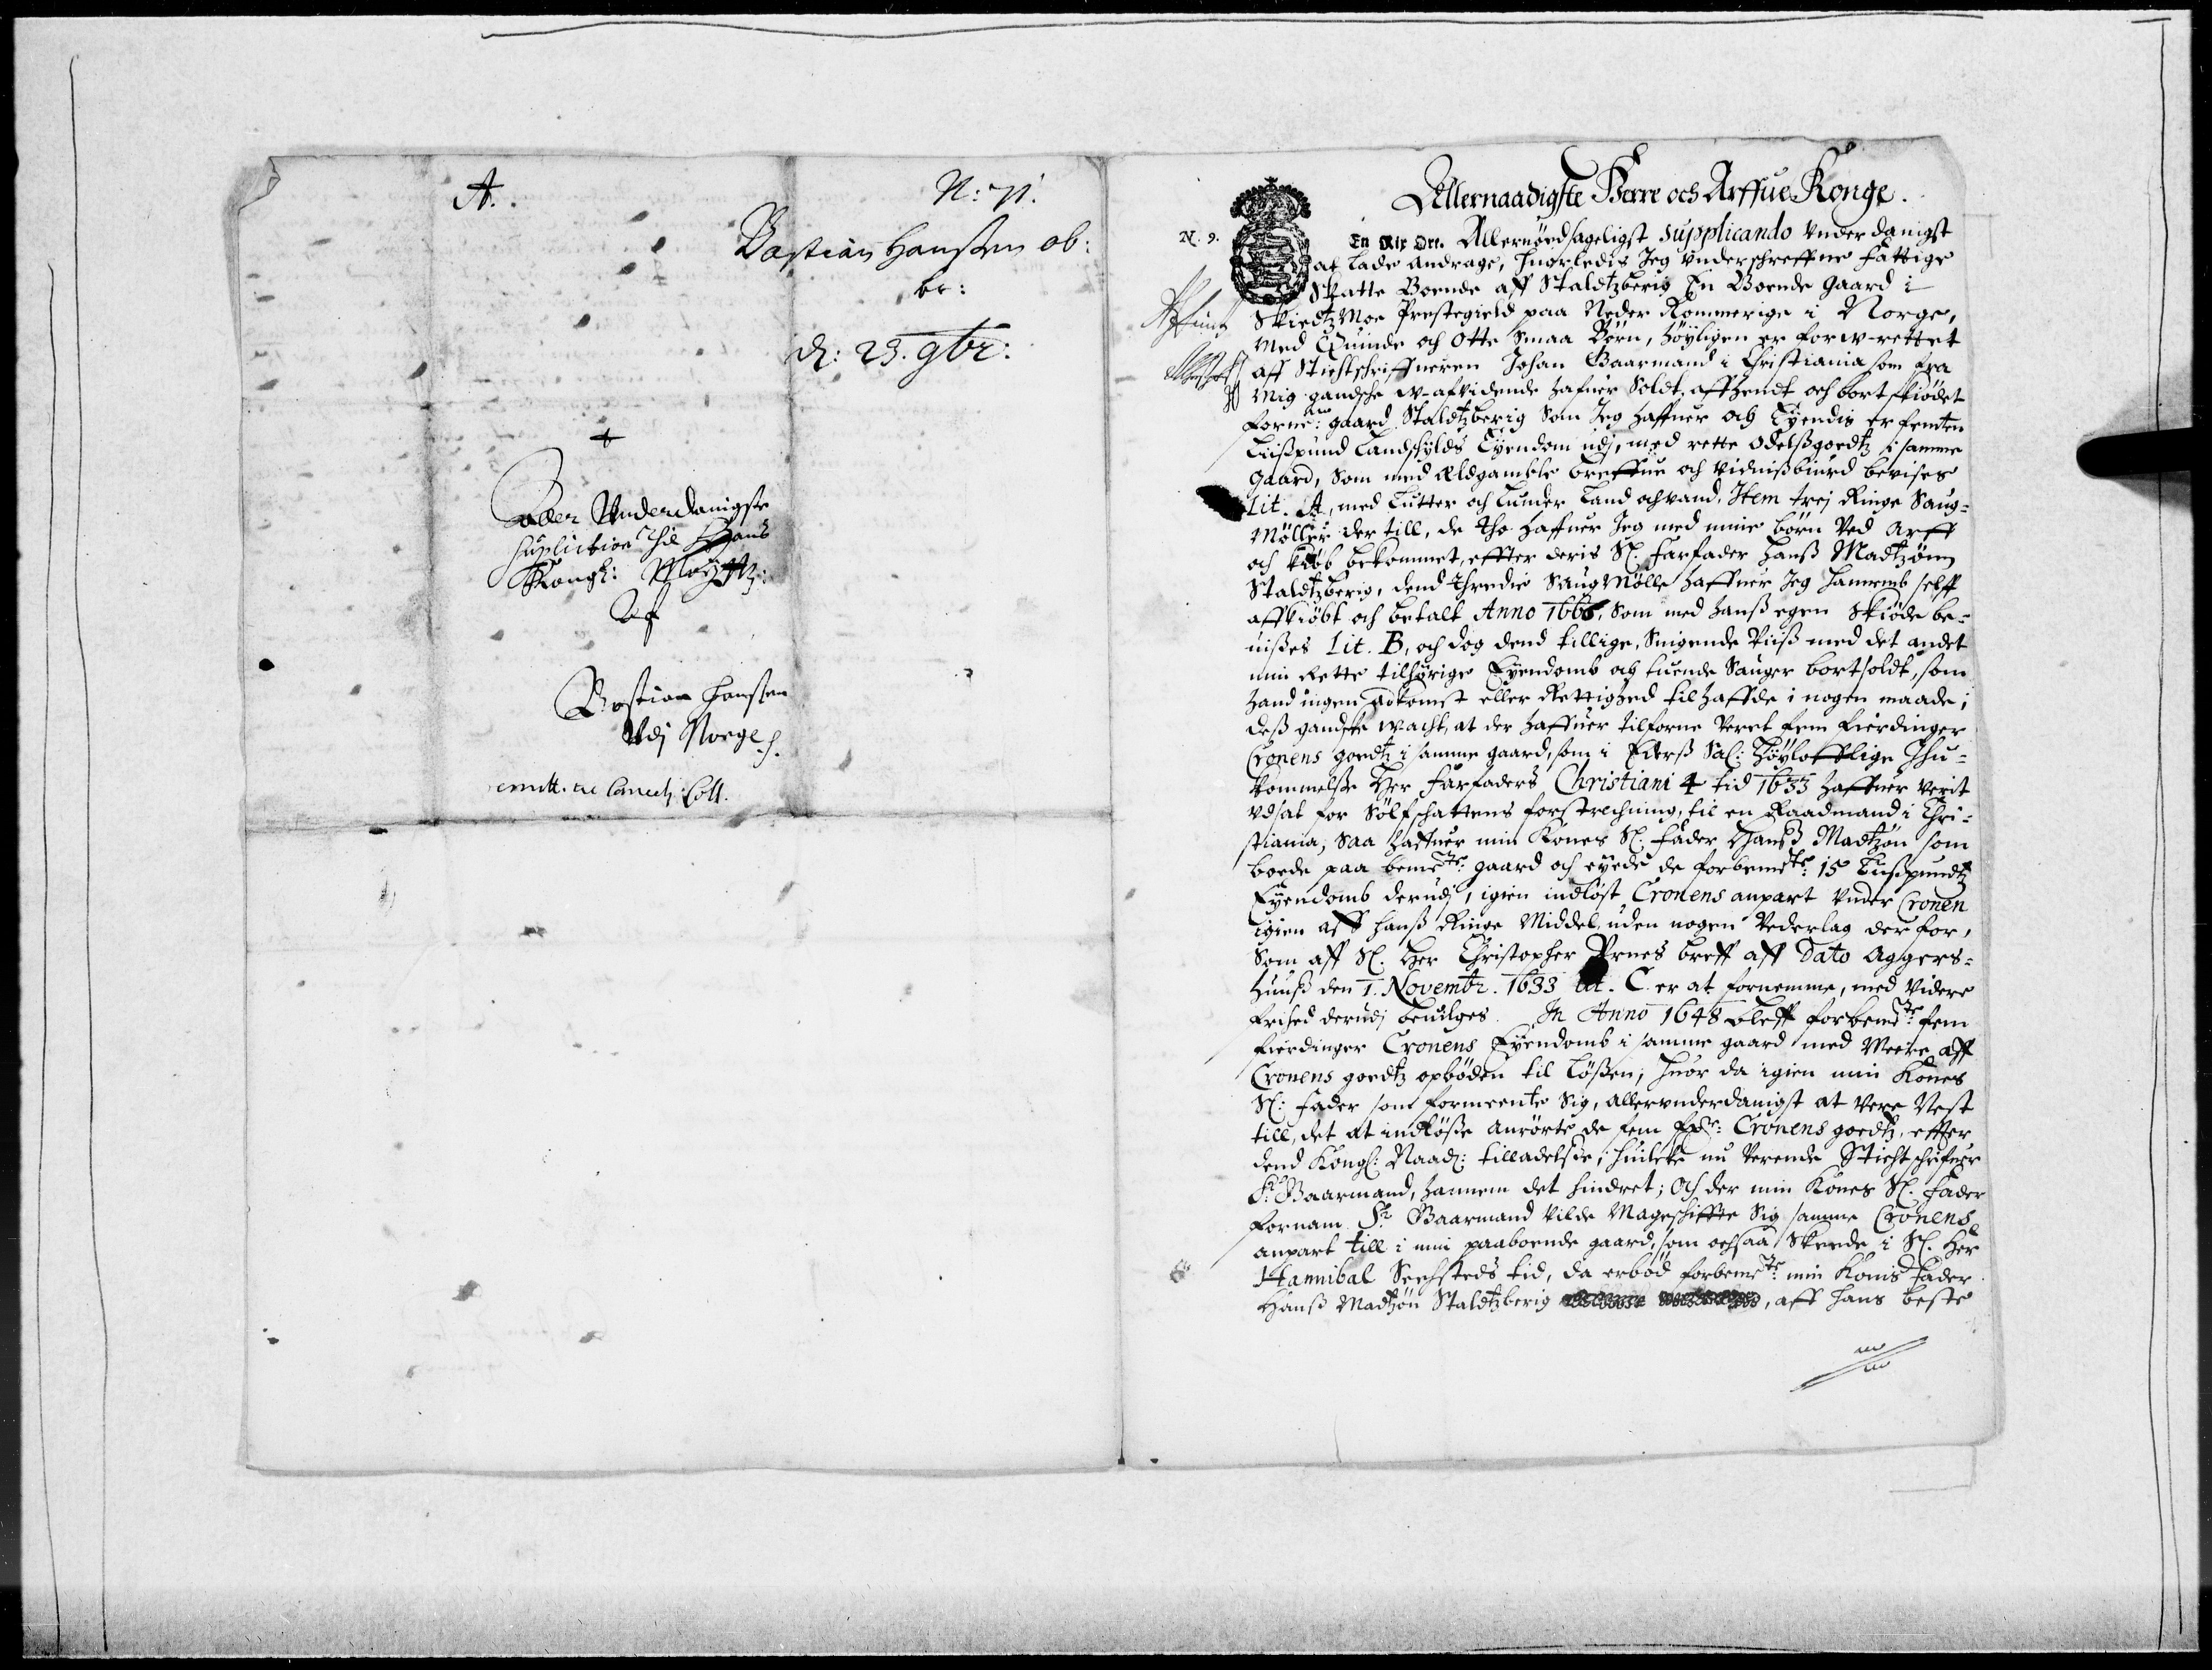 A.
N: 71.
Bastian Hanßen ob:
br:
d: 23. 9br:
Aller Underdanigste
suplication Til Hans
Kongl: Mayt:
Af
Bastian Hanßen
Udj Norge.
remitt. ad Cancel: Coll.
Allernaadigste Herre och Arffue Konge.
N. 9.
En Rix Ort. Allernødsageligst supplicando underdanigst
at lade andrage, huorledis Jeg underschreffne fattige
Skatte Boende aff Staldtzberig En Boende gaard i
Skiedtzmoe Prestegield paa Neder Rommerige i Norge,
med Quinde och Otte Smaa Børn, høyligen er forw-rettet
aff Stichtschriffueren Johan Baarmand i Christiania som fra
mig gandsche w-afvidende hafuer soldt, affhendt och bortskiødet
forne: gaard Staldtzberig som Jeg haffuer och Eyendis er femten
Lißpund Landschylds Eyendom udj, med rette odelßgoedtz i samme
gaard, som med ældgamble breffue och vidnißbiurd bevises
Lit. A, med Lutter och Lunder Land och vand. Item trej Ringe Saug-
Møller der till, de tho haffuer Jeg med mine børn ved Arff
och Kiøb bekommet, effter deris Sl. farfader Hanß Madtzøn
Staldtzberig, dend thredie Saugmølle haffuer Jeg hannemb selff
affkiøbt och betalt Anno 1666, som med hanß egen Skiøde be-
uißes Lit. B, och dog dend tillige, Suigende Viiß med det andet
min Rette tilhørige Eyendomb och tuende Sauger bortsoldt, som
hand ingen adkomst eller Rettighed til haffde i nogen maade;
deß gandske w-acht, at der haffuer tilforne veret fem fierdinger
Cronens goedtz i samme gaard, som i Eders Sal: Høylofflige Ihu-
kommelße Her farfaders Christiani 4 tid 1633 haffuer verit
udsat for Sølfschattens forstrechning, til en Raadmand i Chri-
stiania, Saa haffuer min Kones Sl. fader Hanß Madtzøn som
boede paa bemelte: gaard och eyede de forbemelte: 15 Lißpundtz
Eyendomb derudj, igien indløst Cronens anpart under Cronen
igien aff hanß Ringe Middel, uden nogen vederlag derfor,
Som aff Sl. Her Christopher Urnes breff aff Dato Aggers-
huuß den 1. Novembr. 1633 Lit. C. er at fornemme, med videre
frihed derudj beuilges. In Anno 1648 bleff forbemte: fem
fierdinger Cronens Eyendomb i samme gaard med Meere aff
Cronens goedtz opbøden til Løßen; huor da igien min Kones
Sl: fader som formeente Sig, allerunderdanigst at vere Nest
till, det at indløße anrørte de fem fr: Cronens goedtz, effter
dend Kongl: Naad: tilladelße; huilcke nu verende Stichtschrifuer
Sr. Baarmand, hannem det hindret; Och der min Kones Sl. fader
fornam Sr. Baarmand vilde Mageschiffte Sig samme Cronens
anpart till i min paaboende gaard, som ochsaa Skeede i Sl. Her
Hannibal Seehsteds tid, da erbød forbemte: min Konis fader
Hanß Madtzøn Staldtzberig , aff hans beste